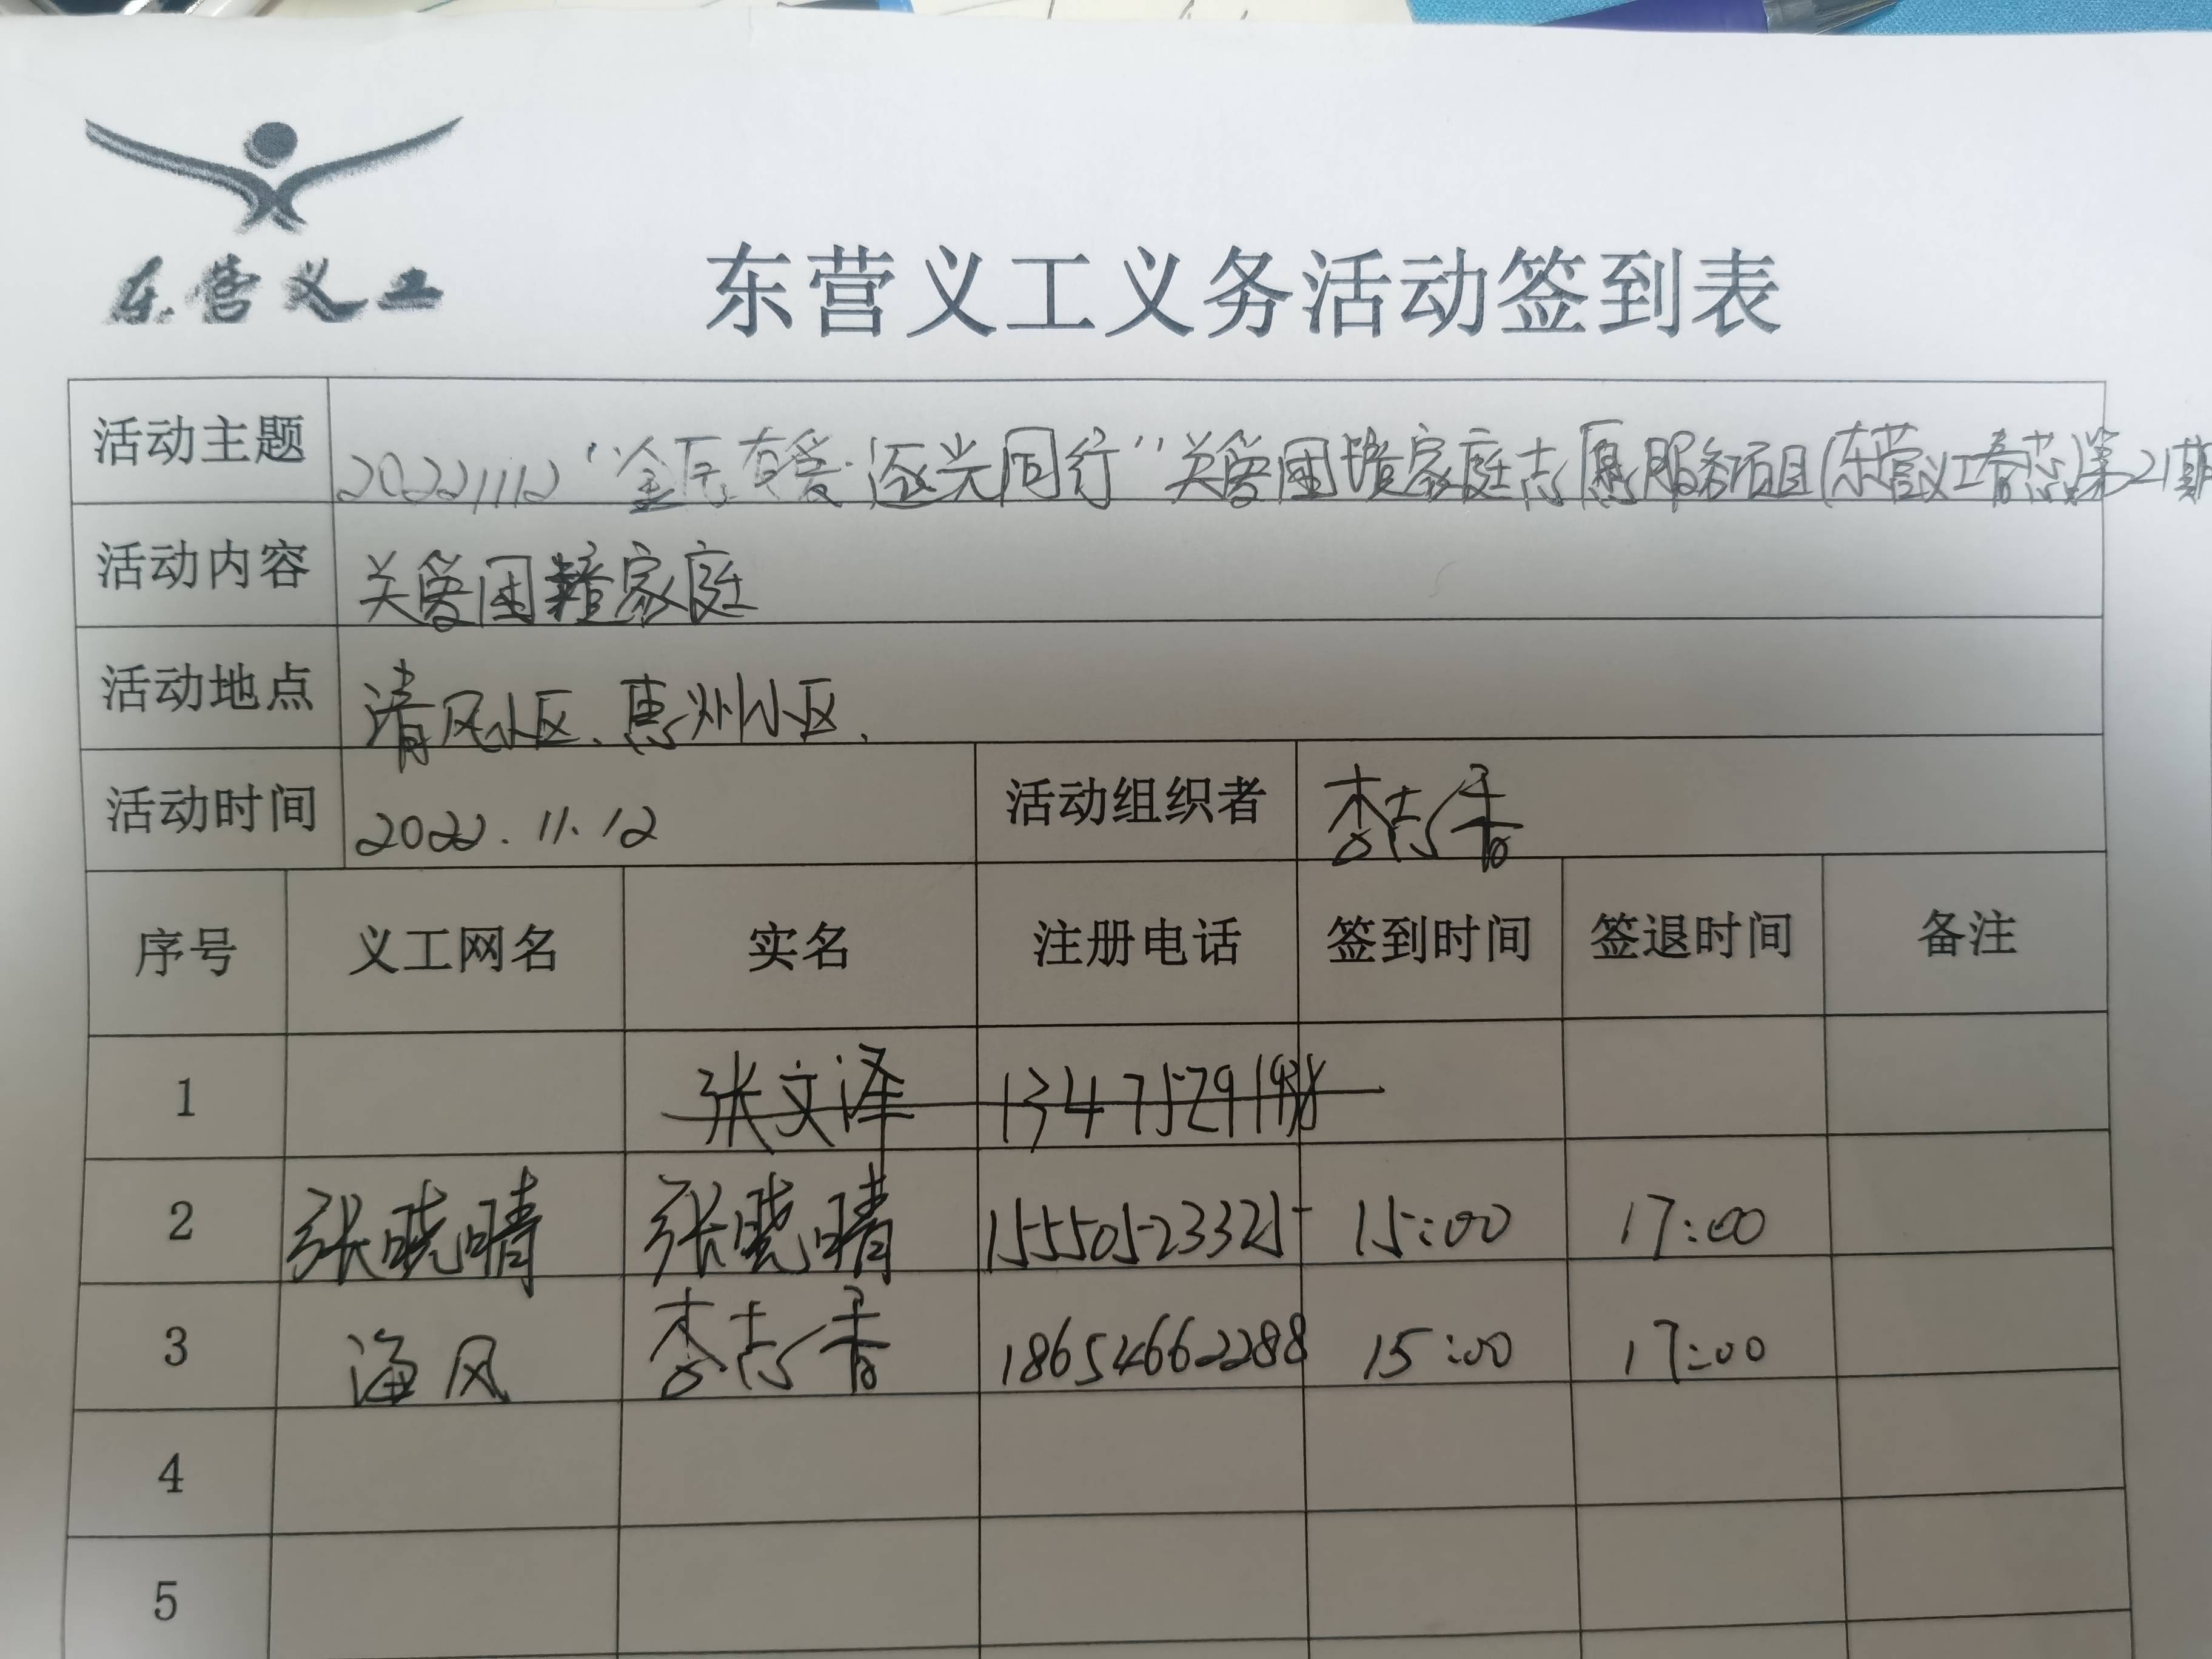 东营义工
东营义工义务活动签到表
活动主题 20221112“金辰有爱·逐光同行”关爱困境家庭志愿服务项目(东营义工春芯)第21期
活动内容 关爱困境家庭
活动地点 清风小区、惠州小区.
活动时间 2022.11.12 活动组织者 李志香
序号 义工网名 实名 注册电话 签到时间 签退时间 备注
1 张文泽
2 张晓晴 张晓晴 15550523325 15:00 17:00
3 海风 李志香 18654662288 15:00 17:00
4
5